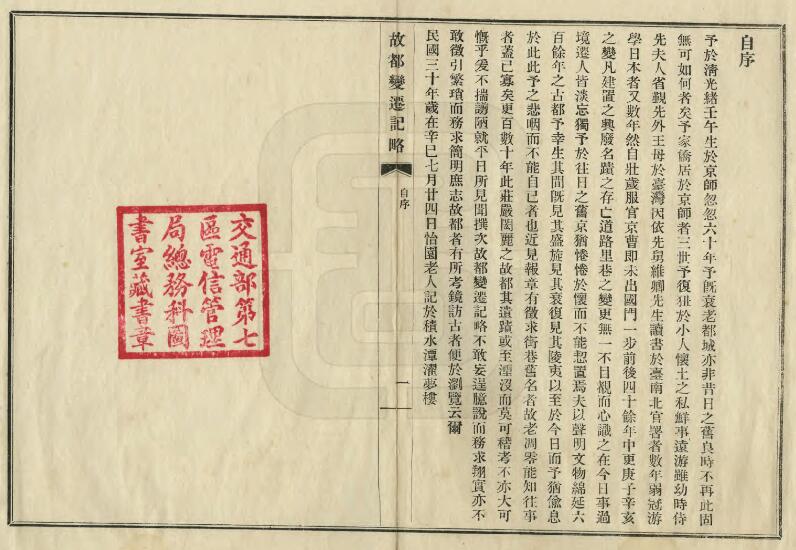 自序
予於淸光緒壬午生於京師忽忽六十年予既衰老都城亦非昔日之舊良時不再此固
無可如何者矣予家僑居於京師者三世予復狃於小人懷土之私鮮事遠游雖幼時侍
先夫人省觀先外王母於臺灣因依先舅維卿先生讀書於臺南北官署者數年弱冠游
學日本者又數年然自壯歲服官京曹即未出國門一步前後四十餘年中更庚子辛亥
之變凡建置之興廢名蹟之存亡道路里巷之變更無一不目覩而心識之在今日事過
境遷人皆淡忘獨予於往日之舊京猶惓惓於懷而不能恝置焉夫以聲明文物綿延六
百餘年之古都予幸生其間既見其盛旋見其衰復見其陵夷以至於今日而予猶偸息
於此此予之悲咽而不能自已者也近見報章有徵求街巷舊名者故老凋零能知往事
者蓋已寡矣更百數十年此莊嚴閎麗之故都其遺蹟或至湮沒而莫可稽考不亦大可
慨乎爰不揣譾陋就平日所見聞撰次故都變遷記略不敢妄逞臆說而務求翔實亦不
敢徵引繁瑣而務求簡明庶志故都者有所考鏡訪古者便於瀏覽云爾
民國三十年歲在辛巳七月廿四日怡園老人記於積水潭濯夢樓
故都變遷記略
自序
一
交通部第七
區電信管理
局總務科圖
書室藏書章